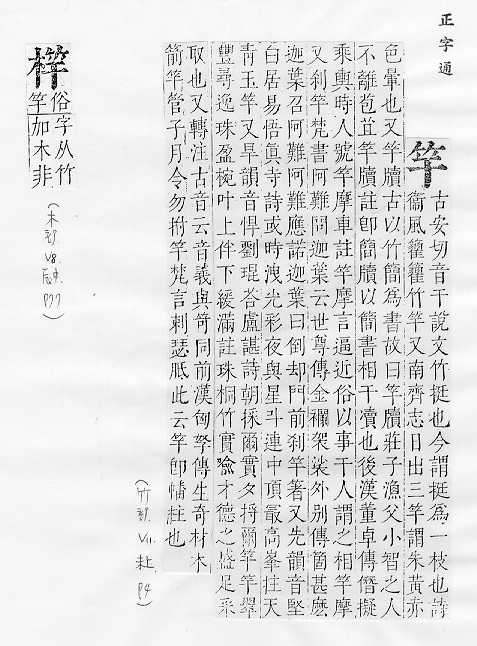 正字通
竿
古安切音干說文竹挺也今謂挺為一枝也詩
衞風籊籊竹竿又南齊志日出三竿謂朱黃亦
色暈也又竿牘古以竹簡為書故曰竿牘莊子漁父小智之人
不離苞苴竿牘註卽簡牘以簡書相干瀆也後漢董卓傳僭擬
乘輿時人號竿摩車註竿摩言逼近俗以事干人謂之相竿摩
又刹竿梵書阿難問迦葉云世尊傳金襴袈裟外別傳箇甚麽
迦葉召阿難阿難應諾迦葉曰倒却門前刹竿著又先韻音堅
白居易悟眞寺詩或時洩光彩夜與星斗連中頂最高峯拄天
靑玉竿又旱韻音悍劉琨荅盧諶詩朝採爾實夕捋爾竿竿翠
豐尋逸珠盈椀叶上伴下緩滿註珠桐竹實喩才德之盛足采
取也又轉注古音云音義與笴同前漢匈奴傳生奇材木
箭竿管子月令勿拊竿梵言刺瑟胝此云竿卽幡柱也
(竹部 VII. 未. P4)
桿
俗字从竹
竿加木非
(木部 P77)